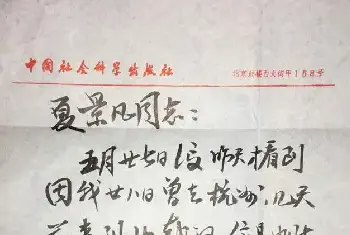 中国社会科学出版社
北京鼓楼西大街甲158号
夏景凡同志：
五月廿七日收 昨天才看到
因我廿八日曾去杭州，几天